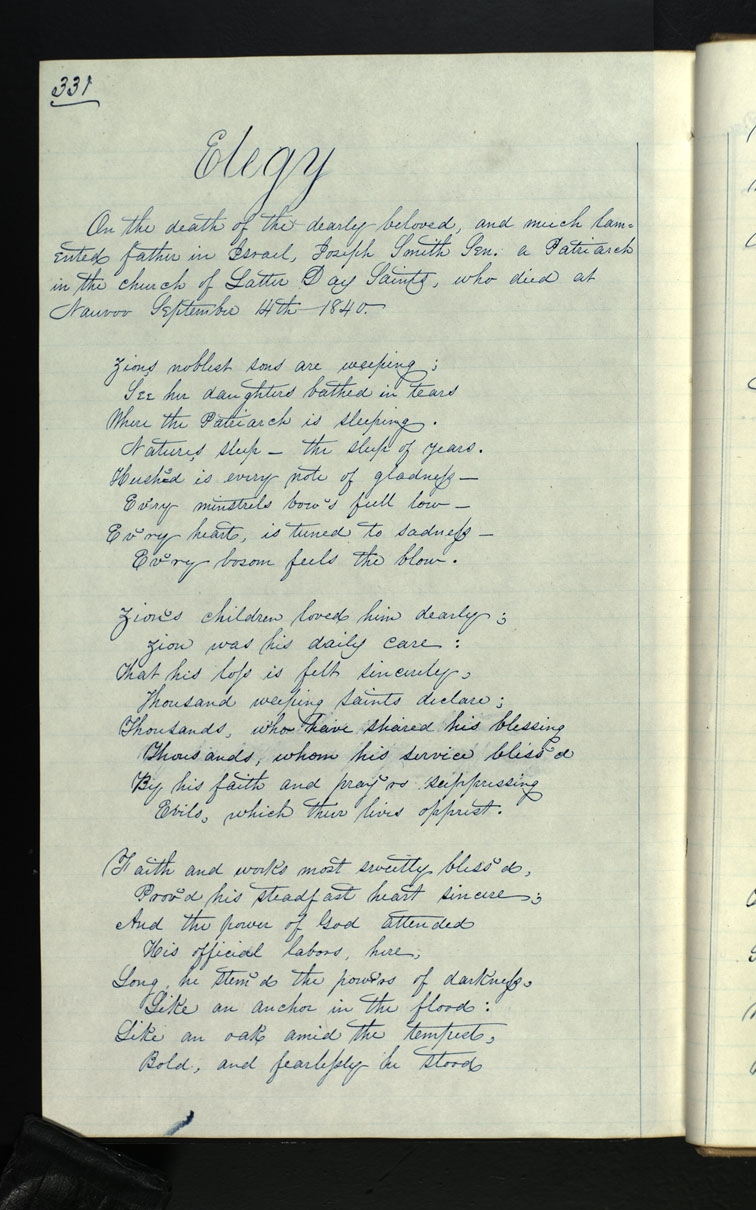 331
Elegy
On the death of the dearly beloved, and much lam=
ented father in Israel, Joseph Smith Sen. a Patriarch
in the church of Latter Day Saints, who died at
Nauvoo September 14th 1840.
Zions noblest sons are weeping;
See her daughters bathed in tears
Where the Patriarch is sleeping.
Natures sleep — the sleep of years.
Hush'd is every note of gladness —
Ev'ry minstrels bow's full low —
Ev'ry heart, is tuned to sadness —
Ev'ry bosom feels the blow.
Zion's children loved him dearly;
Zion was his daily care:
That his loss is felt sincerely,
Thousand weeping saints declare;
Thousands, who have shared his blessing
Thousands, whom his service bless'd
By his faith and pray'rs suppressing
Evils, which their lives opprest.
Faith and works most sweetly bless'd,
Prov'd his steadfast heart sincere;
And the power of God attended
His official labors, here,
Long he stem'd the pow'rs of darkness,
Like an anchor in the flood:
Like an oak amid the tempest,
Bold, and fearlessly he stood